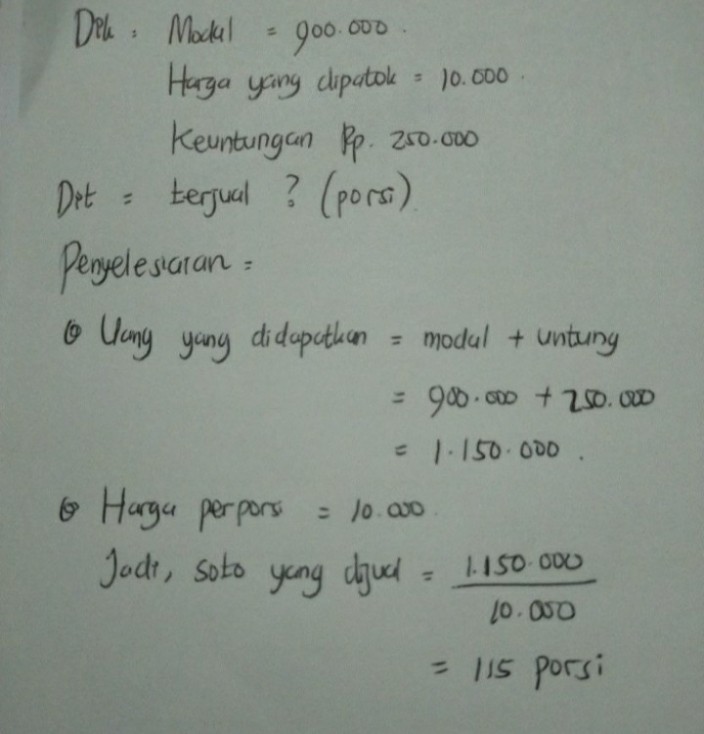 Dik : Modal = 900.000.
Harga yang dipatok = 10.000.
Keuntungan Rp. 250.000
Dit = terjual ? (porsi)
Penyelesaian =
Uang yang didapatkan = modal + untung
= 900.000 + 250.000
= 1.150.000.
Harga perpors = 10.000.
Jadi, soto yang dijual = 1.150.000
10.000
= 115 porsi